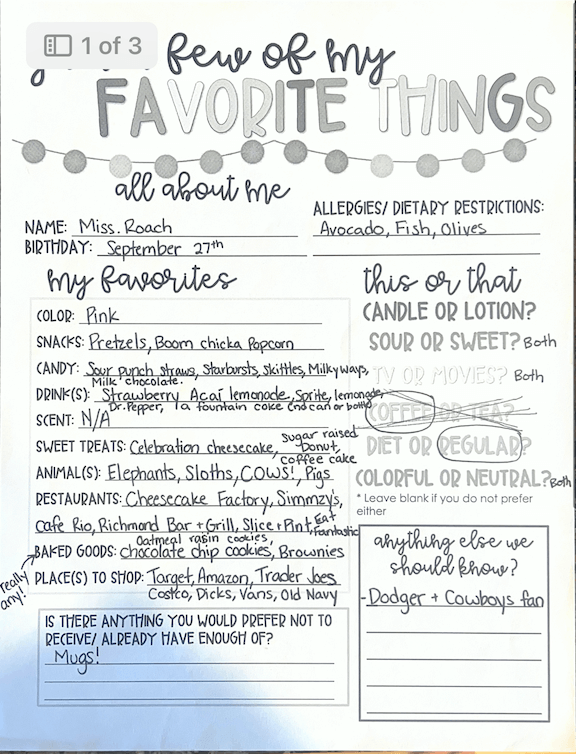 1 of 3
few of my
FAVORITE THINGS
all about me
NAME: Miss. Roach
BIRTHDAY: September 27th
ALLERGIES/ DIETARY RESTRICTIONS:
Avocado, Fish, Olives
my favorites
COLOR: Pink
SNACKS: Pretzels, Boom chicka Popcorn
CANDY: Sour punch straws, Starbursts, Skittles, Milky ways,
Milk chocolate.
DRINK(S): Strawberry Acaí lemonade, Sprite, lemonade,
Dr. Pepper, la fountain coke and can or bottle
SCENT: N/A
SWEET TREATS: Celebration cheesecake, sugar raised
Donut,
coffee cake
ANIMAL(S): Elephants, Sloths, COWS!, Pigs
RESTAURANTS: Cheesecake Factory, Simmzy's,
Cafe Rio, Richmond Bar + Grill, Slice + Pint, Eat
Fantastic
Oatmeal rasin cookies,
BAKED GOODS: chocolate chip cookies, Brownies
really
any!
PLACE(S) TO SHOP: Target, Amazon, Trader Joes
Costco, Dicks, Vans, Old Navy
IS THERE ANYTHING YOU WOULD PREFER NOT TO
RECEIVE/ ALREADY HAVE ENOUGH OF?
Mugs!
this or that
CANDLE OR LOTION?
SOUR OR SWEET? Both
TV OR MOVIES? Both
COFFEE OR TEA?
DIET OR REGULAR?
COLORFUL OR NEUTRAL? Both
* Leave blank if you do not prefer
either
anything else we
should know?
- Dodger + Cowboys fan